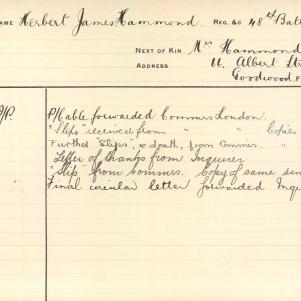 NAME Herbert James Hammond. REG. &C 48th Batt
NEXT OF KIN Mrs Hammond
ADDRESS 66. Albert Str
Goodwood.
P/Cable forwarded Commrs London.
"Slips" received from " " Copies
Further "Slips", re death, from Commrs. "
Letter of thanks from Inquirer
"Slip" from Commrs. Copy of same sen
Final circular letter forwarded Inq